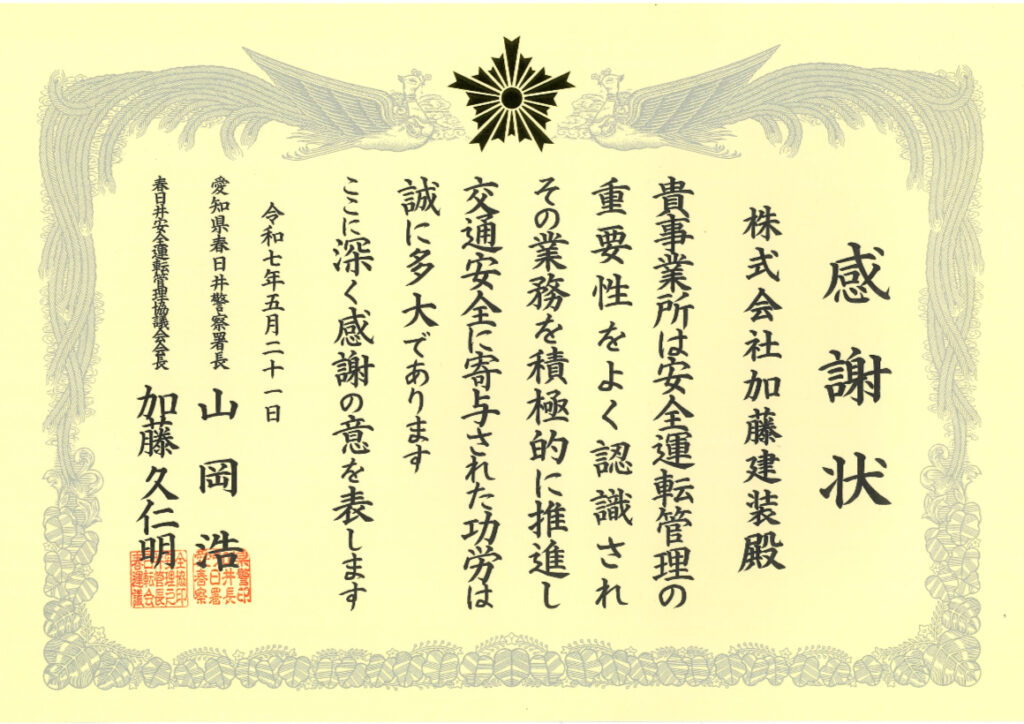 感謝状
株式会社加藤建装殿
貴事業所は安全運転管理の
重要性をよく認識され
その業務を積極的に推進し
交通安全に寄与された功労は
誠に多大であります
ここに深く感謝の意を表します
令和七年五月二十一日
愛知県春日井警察署長 山岡浩
春日井安全運転管理協議会会長 加藤久仁明